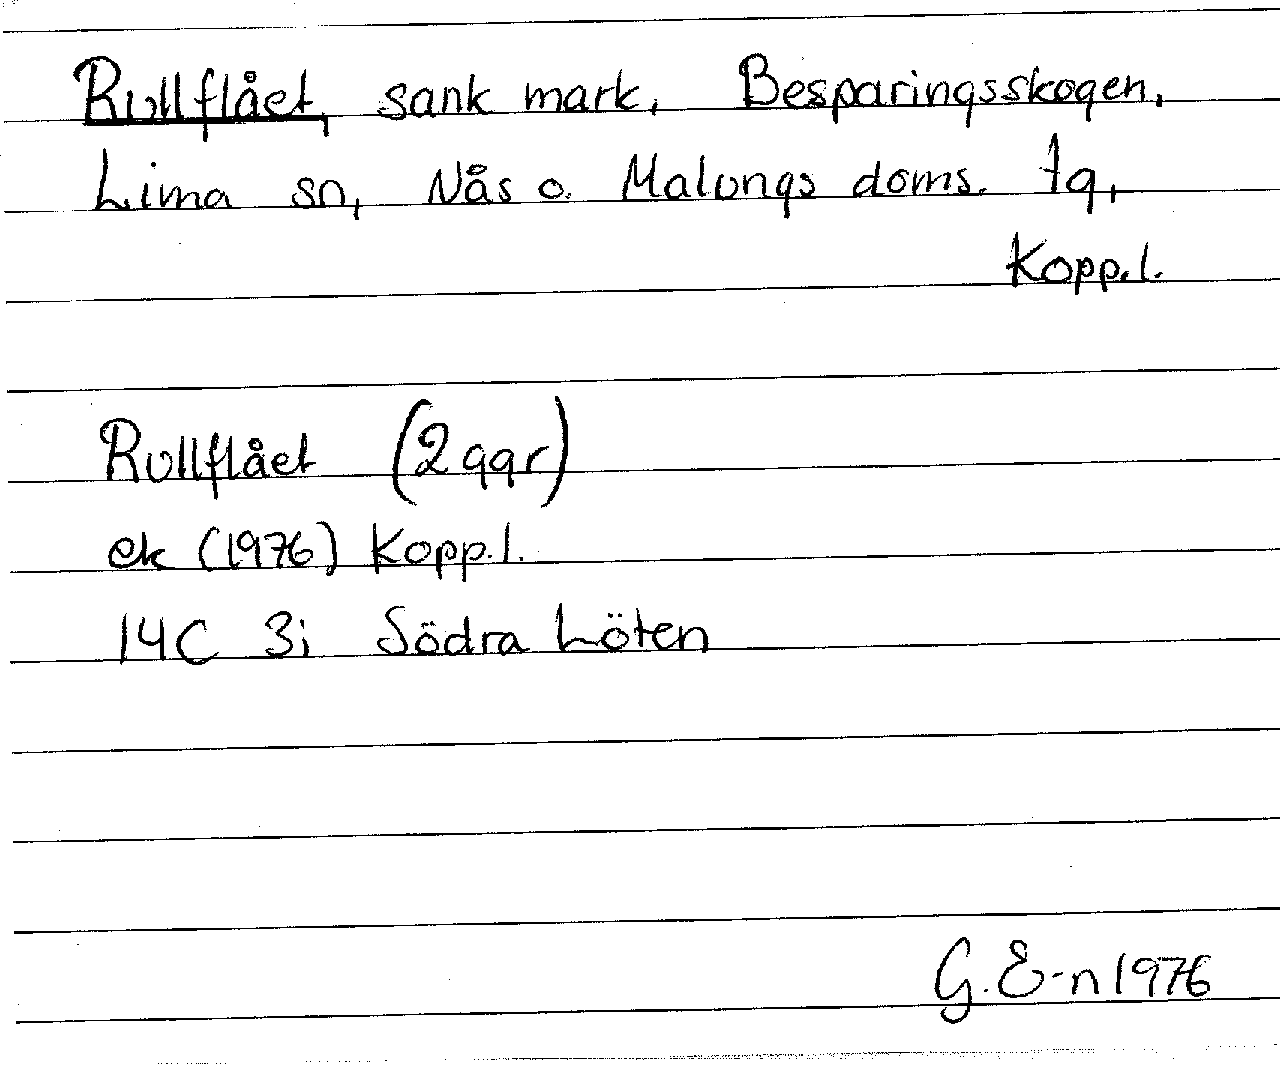 Rullflået, sank mark, Besparingsskogen,
Lima sn, Nås o. Malungs doms. tg,
Kopp.l.
Rullflået (2 ggr)
ek (1976) Kopp.l.
14C 3i Södra Löten
G. E-n 1976